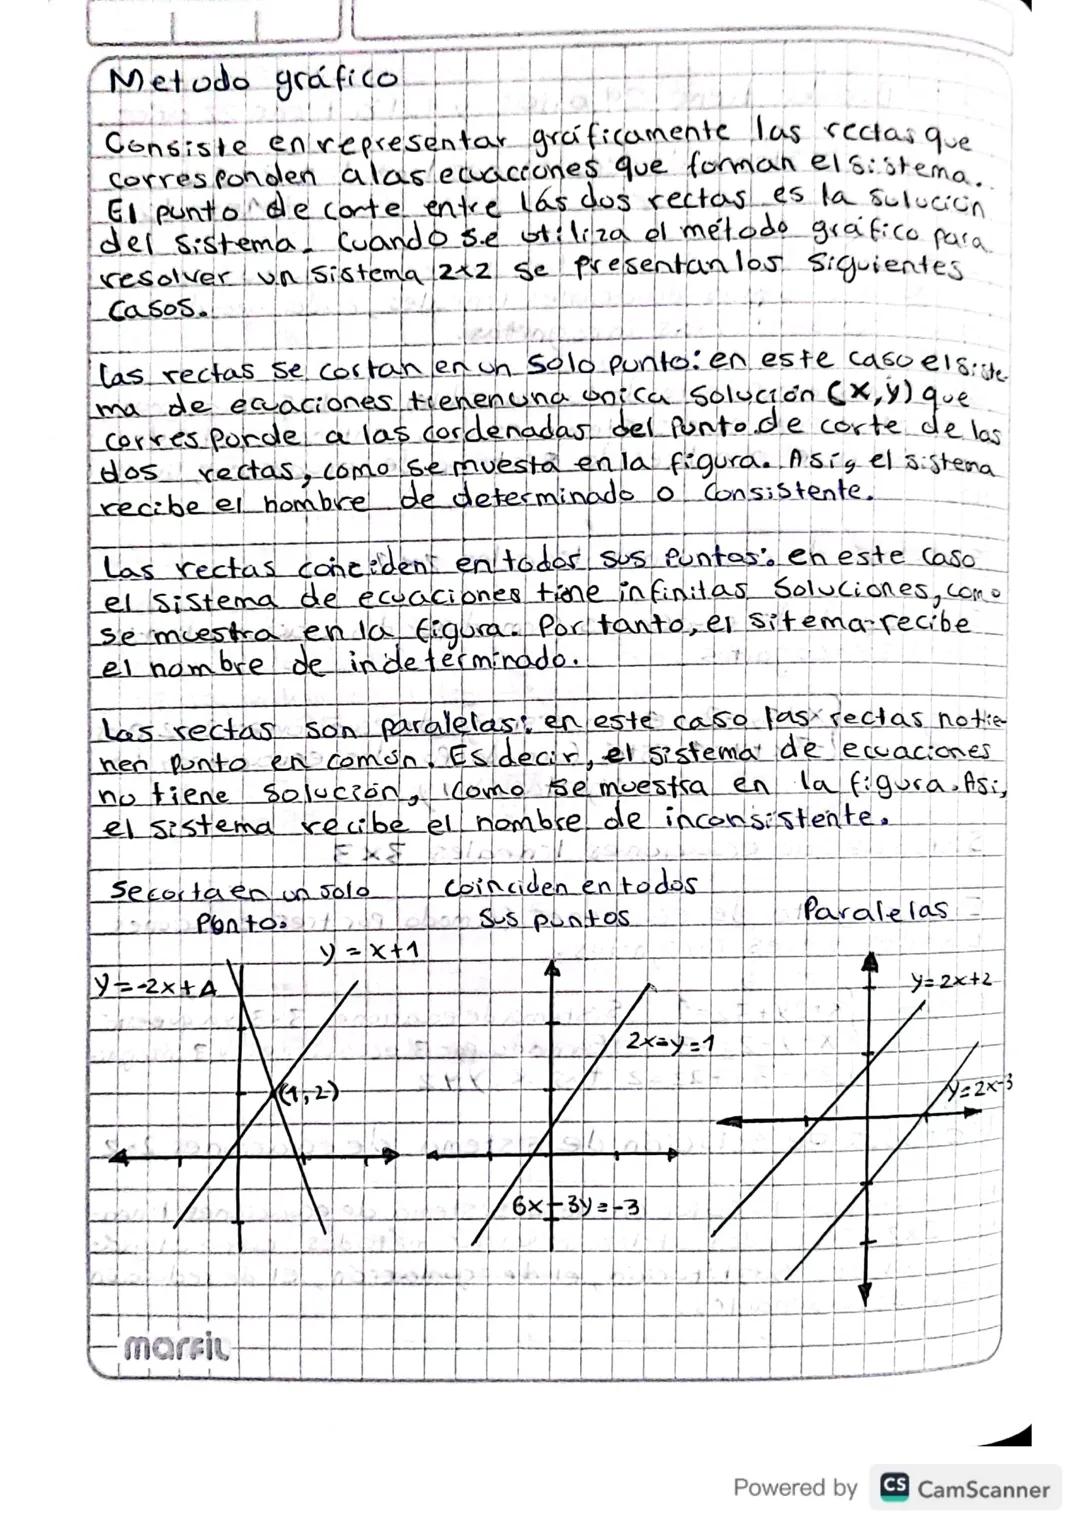 Metodo gráfico
Consiste en representar gráficamente las rectas que
corresponden a las ecuaciones que forman el sistema.
El punto de corte entre las dos rectas es la solución
del sistema. Cuando se utiliza el método gráfico para
resolver un sistema 2x2 se presentan los siguientes
casos.
Las rectas se cortan en un solo punto: en este caso el siste
ma de ecuaciones tienen una unica solución (x,y) que
corresponde a las cordenadas del punto de corte de las
dos rectas, como se muesta en la figura. Así, el sistema
recibe el nombre de determinado o consistente.
Las rectas coinciden en todos sus puntos: en este caso
el sistema de ecuaciones tiene infinitas soluciones, como
se muestra en la figura. Por tanto, el sitema recibe
el nombre de indeterminado.
Las rectas son paralelas: en este caso las rectas no tie
nen punto en común. Es decir, el sistema de ecuaciones
no tiene solución, como se muestra en la figura. Asi,
el sistema recibe el nombre de inconsistente.
Se corta en un solo
Punto.
coinciden en todos
sus puntos
Paralelas
y = x+1
y=-2x+4
(1,2)
2x-y=1
6x-3y=-3
y=2x+2
y=2x-3
marfil
Powered by CS CamScanner